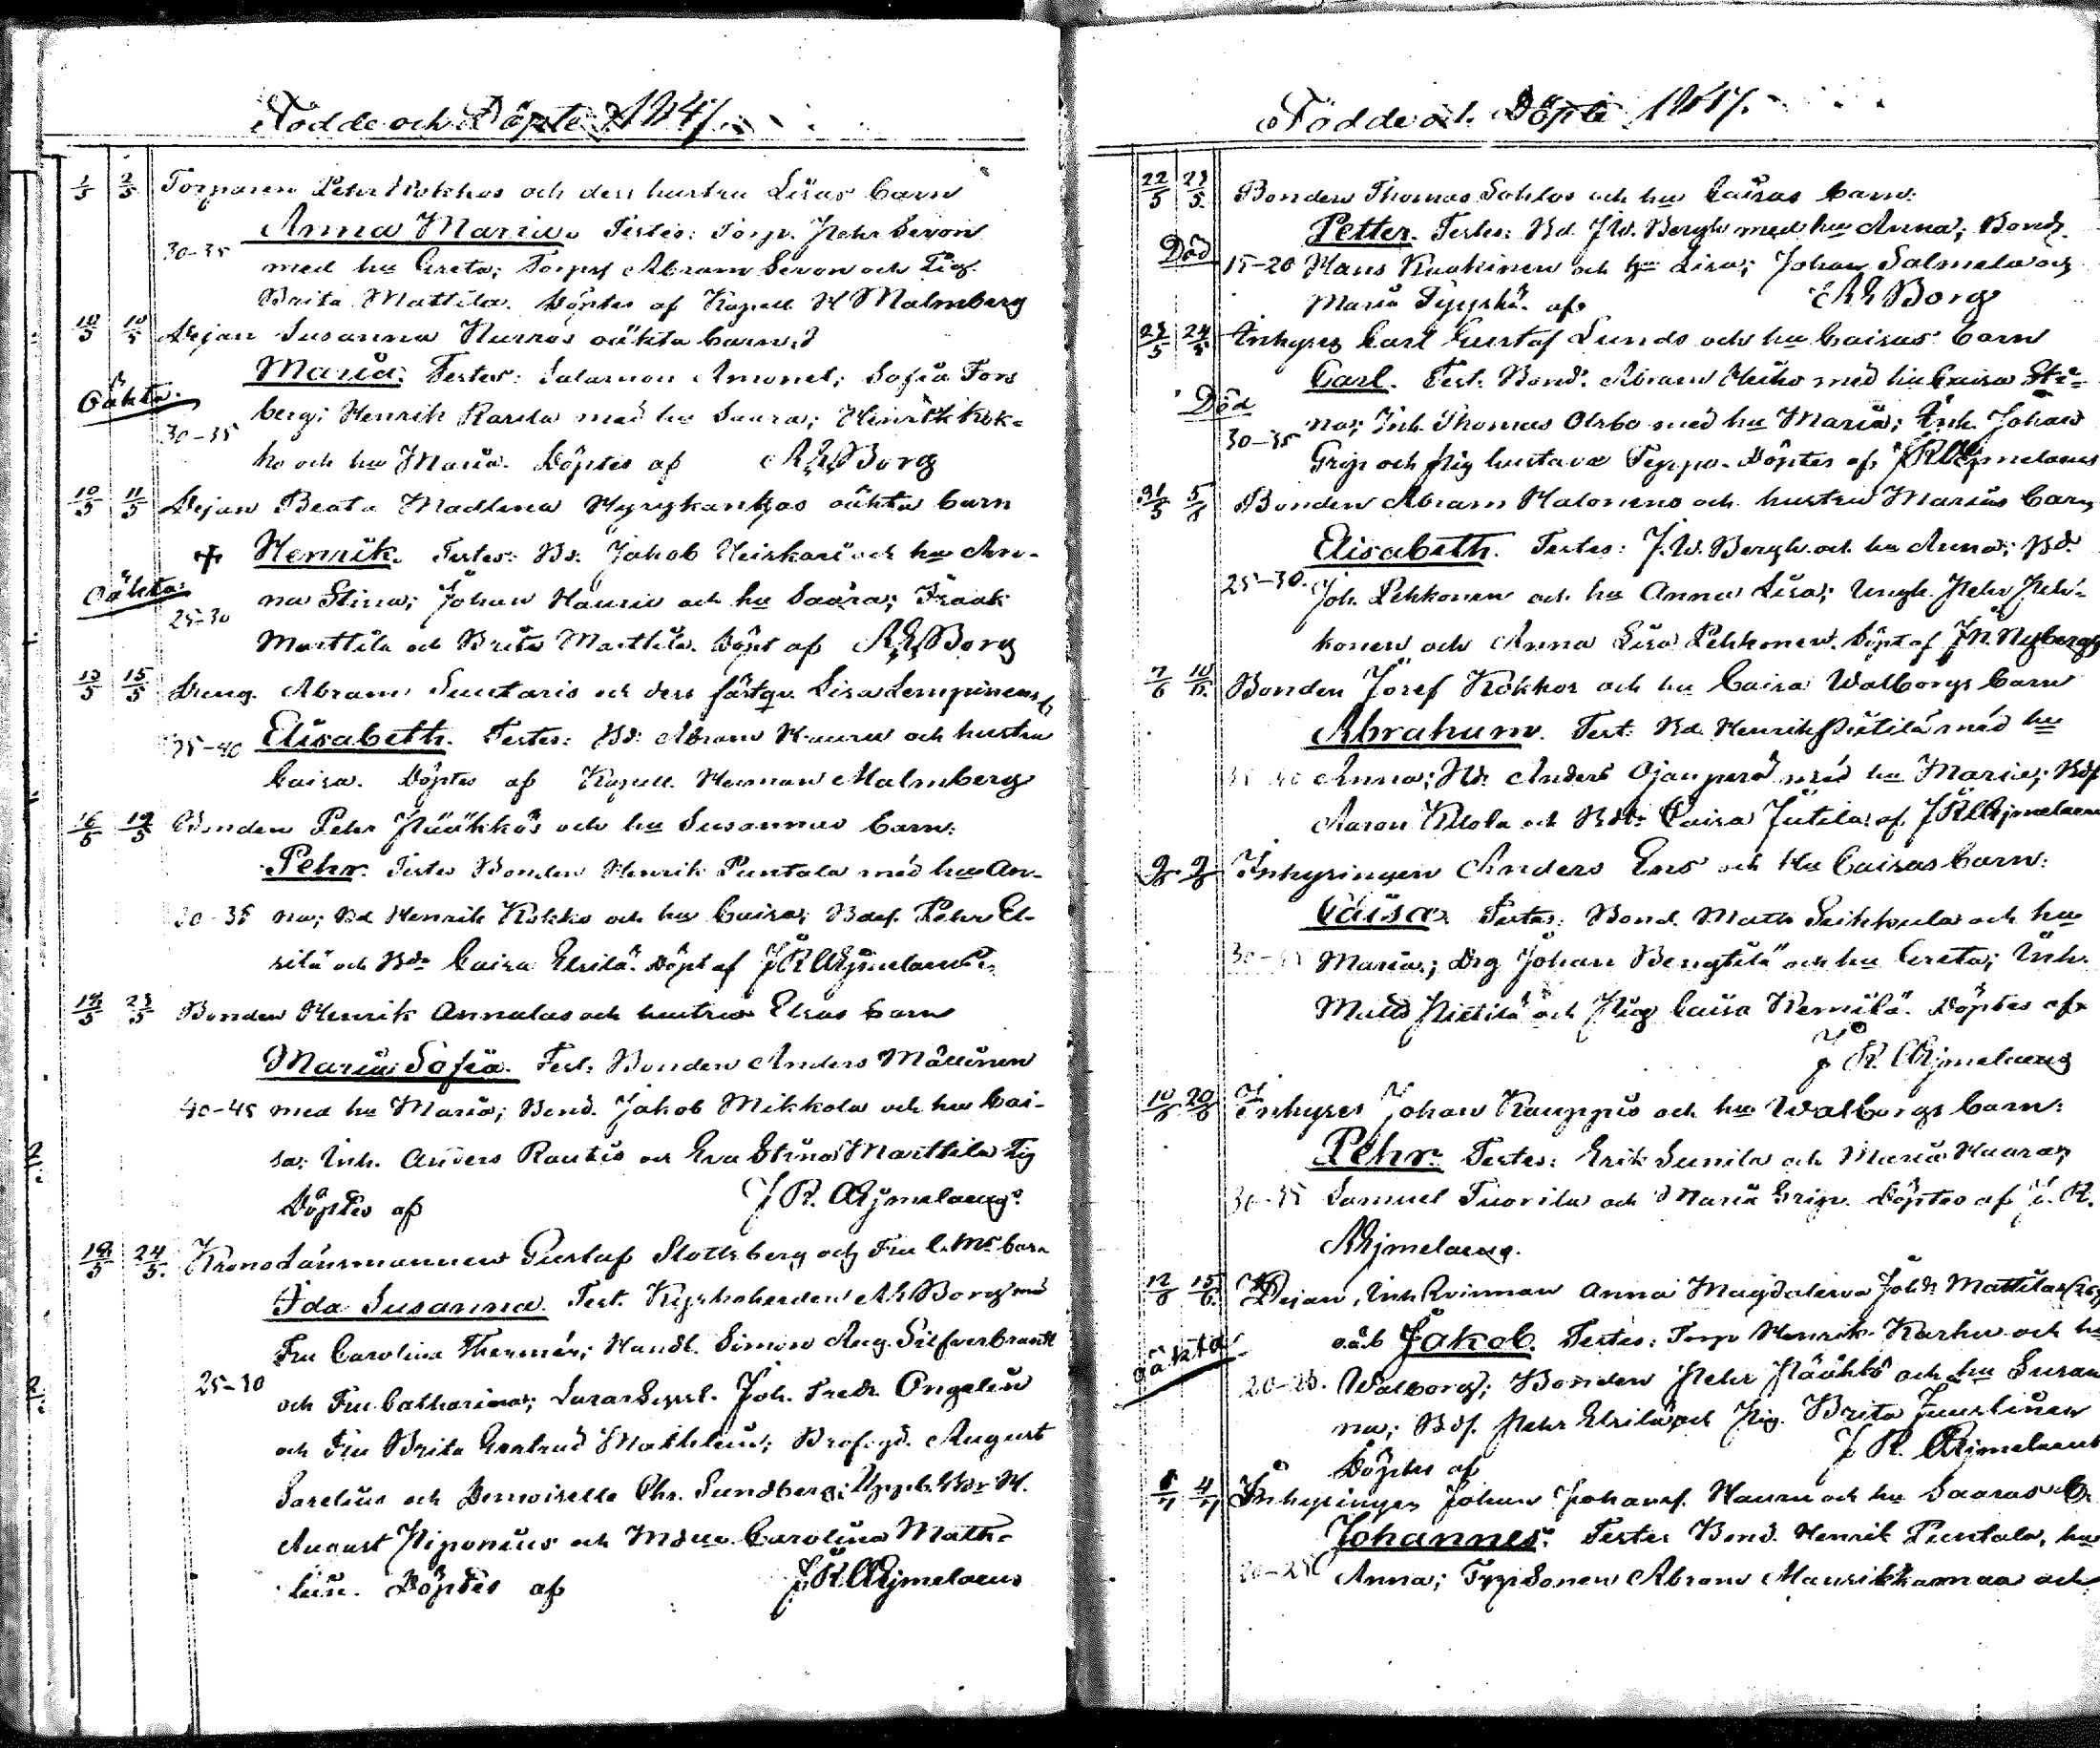 Födde och Döpte 1847.
1/5 2/5 Torparen Pehr Kokkos och dess hustru Lisas barn
Anna Maria. Testes: Torp. Pehr Sevon
30-35 med hu Greta; Torps Abram Sevon och Pig.
Brita Mattila. Döptes af Kapell H Malmberg
10/5 10/5 Pejan Susanna Kurras oäkta barn
Maria. Testes: Salamon Amonel; Sofia Fors
Oäkta.
berg; Henrik Rasila med hu Saara; Henrik Kok-
30-35
ko och hu Maria. Döptes af A E Borg
10/5 11/5 Pejan Beata Madlena Hyrykankas oäkta barn
Henrik. Testes: Bd. Jakob Heiskari och hu An-
oäkta
na Stina; Johan Hauru och hu Saara; Isaak
25-30
Marttila och Brita Marttila. Döpt af A E Borg
13/5 15/5 Dreng. Abram Suutaris och dess fästqv. Lisa Lempinens b
35-40 Elisabeth. Testes: Bd. Abram Hauru och hustru
Caisa. Döptes af Kapell. Herman Malmberg
16/5 19/5 Bonden Pehr Pääkkös och hu Susannas barn:
Pehr. Testes Bonden Henrik Puntala med hu An-
30-35 na; Bd Henrik Kokko och hu Caisa; Bdes. Pehr El-
silä och Bdr Caisa Elsilä. Döpt af J R Aejmelaeus
18/5 23/5 Bonden Henrik Annalas och hustrus Elsas barn
Maria Sofia. Test. Bonden Anders Määttänen
40-45 med hu Maria; Bond. Jakob Mikkola och hu Cai-
sa; Inh. Anders Rautio och Eva Stina Marttila Pig
Döptes af J R. Aejmelaeus
19/5 24/5. Krono Länsmannen Gustaf Slottsberg och Fru barn
Ida Susanna. Test. Kyrkoherden A E Borg med
Fru Carolina Thermén; Handl. Simon Aug. Silfverbrandt
25-30 och Fru Catharina; Joh. Fredr. Ongelin
och Fru Brita Gertrud Mathlein; Brofogd. August
Sarelius och Demoiselle Chr. Sundberg;
August Piponius och Mdlle Carolina Math-
lein. Döptes af J R Aejmelaeus
Födde och Döpte 1847.
22/5 23/5. Bonden Thomas Sohlos och hu Caisas barn:
Petter. Testes: Bd. J W. Bergh med hu Anna; Bond.
Död 15-20 Hans Kaakinen och hu Lisa; Johan Salmela och
Maria af A E Borg
23/5 24/5 Inhyses Carl Gustaf Lunds och hu Caisas barn
Carl. Test. Bond. Abram Heiko med hu Caisa Sti-
Död
na; Inh. Thomas Olsbo med hu Maria; Inh. Johan
30-35
Grip och Pig Gustava Teppo. Döptes af J R Aejmelaeus
31/5 5/6 Bonden Abram Halonens och hustru Marias barn
Elisabeth. Testes: J. W. Bergh. och hu Anna; Bd.
25-30. Joh. Pekkonen och hu Anna Lisa; Ungk. Pehr Pek-
konen och Anna Lisa Pekkonen. Döpt af J N. Nyberg
7/6 10/6. Bonden Josef Kokkos och hu Caisa Walborgs barn
Abraham. Test. Bd. Henrik Pietilä med hu
35-40 Anna; Bd. Anders Ojanperä med hu Maria; Bds
Aaron Kilola och Bdr Caisa Jutila. af J R Aejmelaeus
9/6 9/6 Inhysingen Anders Ens och Hu Caisas barn:
Caisa. Testes: Bond. Matts Seikkula och hu
30- Maria; Drg Johan Bengtilä och hu Greta; Inh.
Matts Pietilä och Pig Caisa Kemilä. Döptes af
J R. Aejmelaeus
10/6 20/6 Inhyses Johan Kauppis och hu Walborgs barn:
Pehr. Testes: Erik Sunila och Maria Haara;
30-35 Samuel Tuorila och Maria Grip. Döptes af J. R.
Aejmelaeus.
12/6 15/6. Pejan, Inh. Qvinnan Anna Magdalena Johdr Mattilas
oäb Jakob. Testes: Torp Henrik Karhu och hu
oäkta
20-25. Walborg; Bonden Pehr Pääkkö och hu Susan
na; Bds. Pehr Elsilä och Pig. Brita Juuslinen
Döptes af J R. Aejmelaeus
4/7 Inhysingen Johan Johans. Hauru och hu Saaras b.
Johannes. Testes Bond. Henrik Puntala, hu
20-25 Anna; Torp Sonen Abram Maurikkamaa och